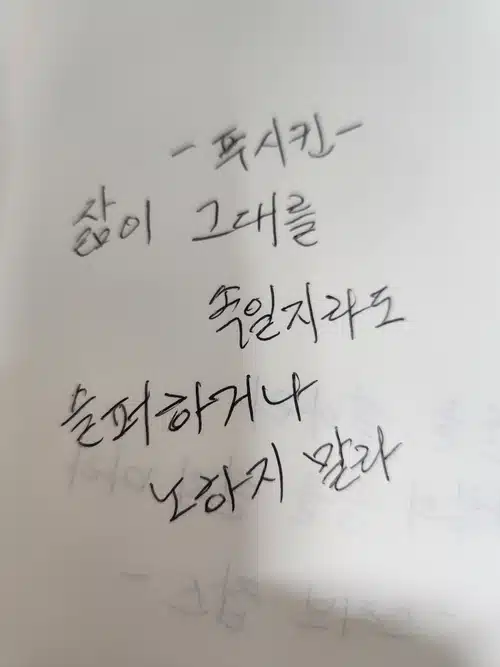 - 푸시킨 -
삶이 그대를
속일지라도
슬퍼하거나
노하지 말라